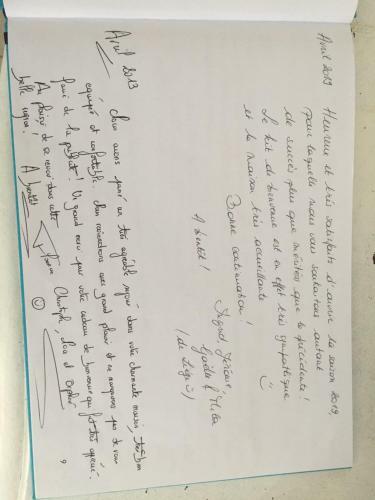 Avril 2019
Heureux et très satisfaits d'ouvrir la saison 2019,
pour laquelle nous vous souhaitons autant
de succès plus que mérités que la précédente !
Le kit de bienvenue est en effet très sympathique
et la maison très accueillante
Bonne continuation !
A bientôt !
Ingrid, Jérôme,
Gaëlle &
(de Liège)
Avril 2019
Nous avons passé un très agréable séjour dans votre charmante maison, très bien
équipée et confortable. Nous reviendrons avec grand plaisir et ne manquerons pas de vous
faire de la publicité ! Un grand merci pour votre cadeau de bienvenue qui fut très apprécié.
Au plaisir de se revoir dans cette
belle région.
A bientôt
Christophe, et
9